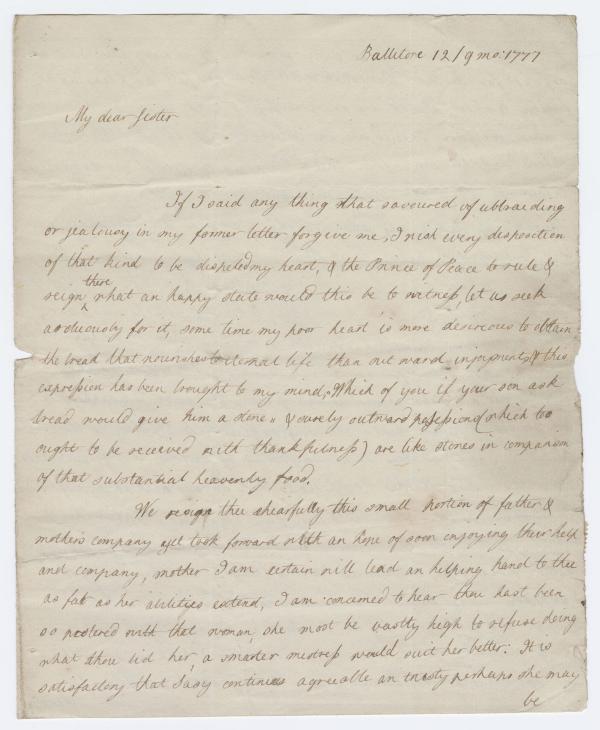 Ballitore 12/9 mo: 1777
My dear Sister
If I said any thing that savoured of ubbraiding
or jealousy in my former letter forgive me, I wish every disposition
of that kind to be dispeled my heart, & the Prince of Peace to rule &
reign there what an happy state would this be to witness, let us seek
arduously for it, some time my poor heart is more desirious to obtain
the bread that nourishes to eternal life than out ward injoyments, & this
expression has been brought to my mind, Which of you if your son ask
bread would give him a stone " & surely outward possessions (which too
ought to be received with thankfulness) are like stones in comparison
of that substantial heavenly food.
We resign thee chearfully this small portion of father &
mothers company yet look forward with an hope of soon enjoying their help
and company, mother I am certain will lend an helping hand to thee
as far as her abilities extend, I am concerned to hear thou hast been
so pestered with that woman, she most be vastly high to refuse doing
what thou bid her, a smarter mistress would suit her better: It is
satisfactory that continues agreeable an trusty perhaps she may
be